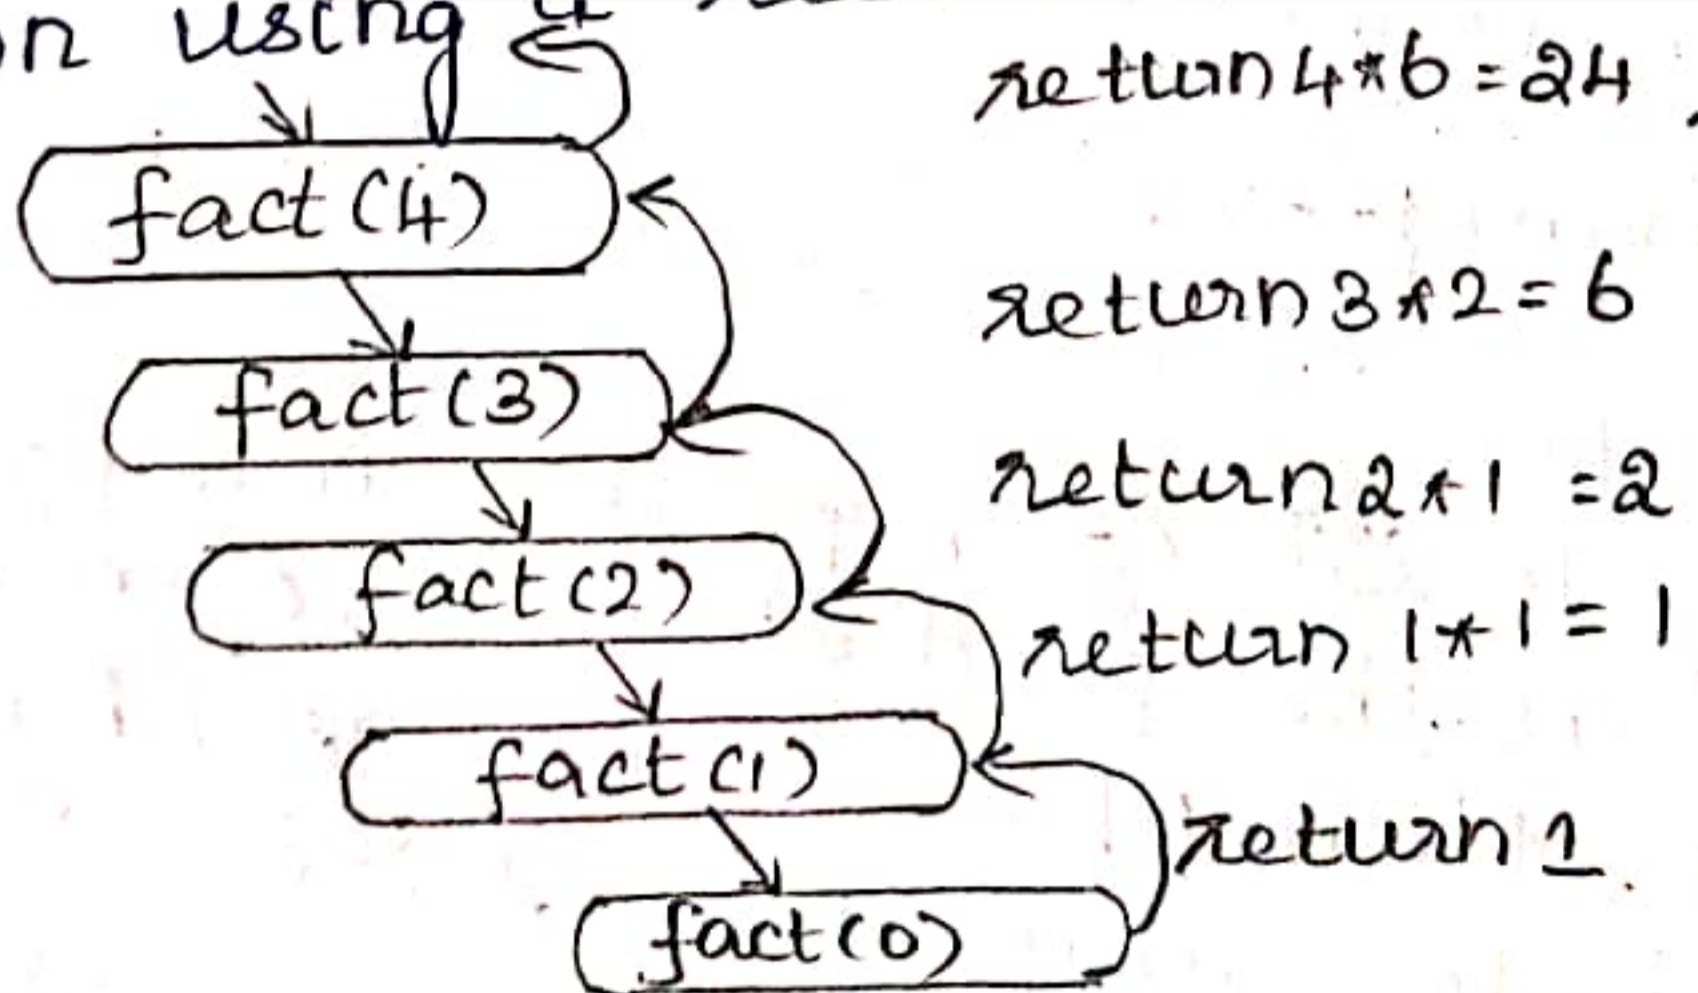 n using a
return 4*6 = 24
fact (4)
return 3*2 = 6
fact (3)
return 2*1 = 2
fact (2)
return 1*1 = 1
fact (1)
return 1.
fact (0)